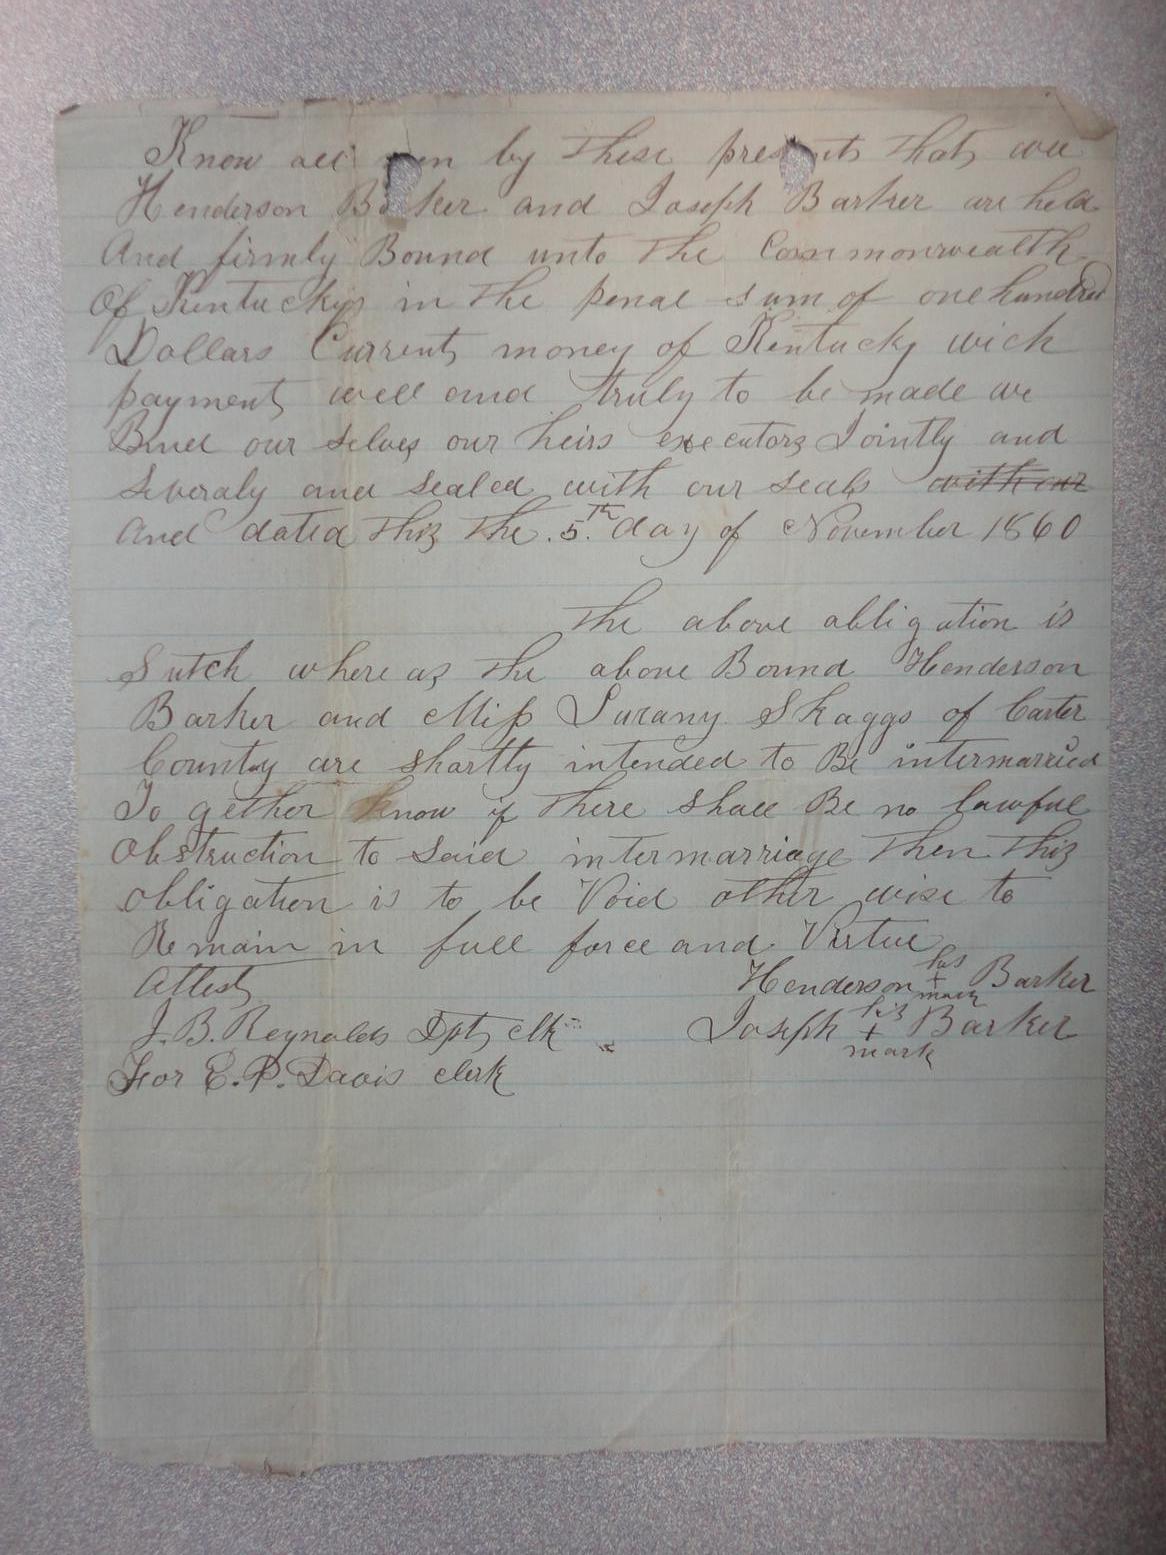 Know all men by these presents that we
Henderson Barker and Joseph Barker are held
And firmly Bound unto the Commonwealth
Of Kentucky in the penal sum of one hundred
Dollars Current money of Kentucky wich
payment well and truly to be made we
Bind our selves our heirs executors Jointly and
Severaly and sealed with our seals with our
And dated this the 5th day of November 1860
The above obligation is
Sutch where as the above Bound Henderson
Barker and Miss Surany Skaggs of Carter
County are shortly intended to Be intermarried
To gether know if there shall Be no lawful
Obstruction to said intermarriage then this
obligation is to be Void other wise to
Remain in full force and Virtue
Attest Henderson his + mark Barker
J. B. Reynolds Dpt clk Joseph his + mark Barker
For E. P. Davis clerk